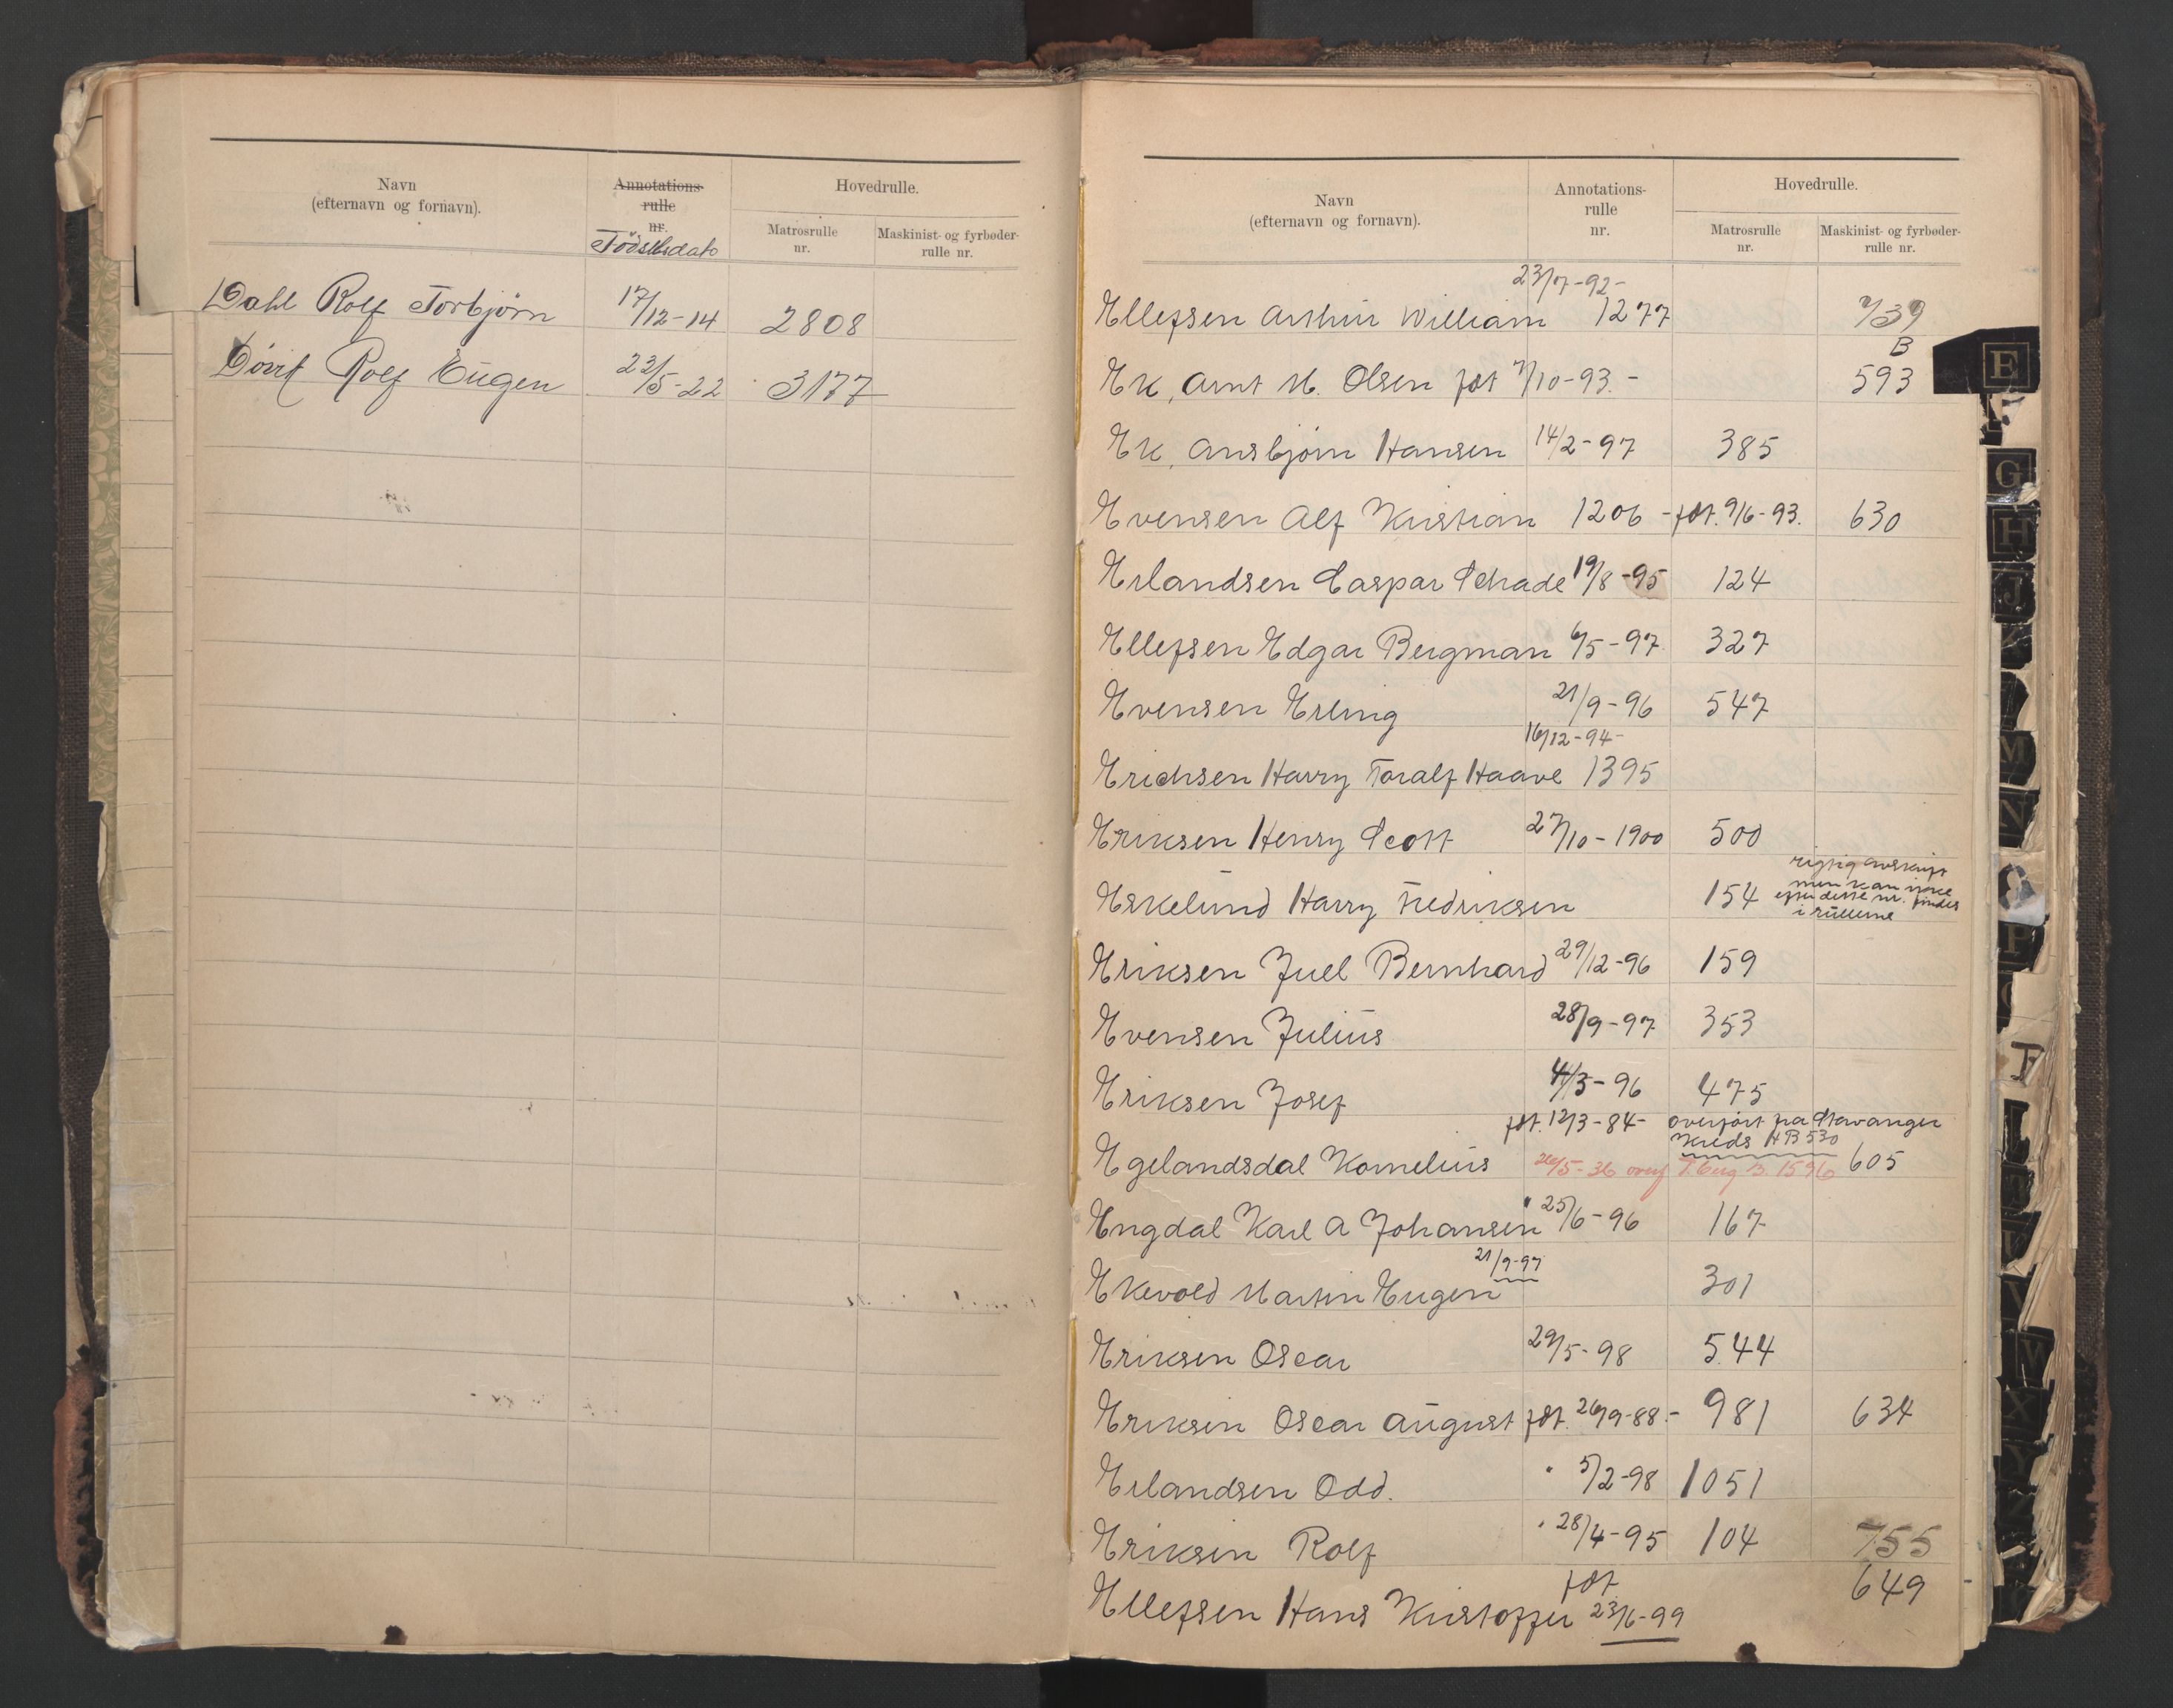 Navn
(efternavn og fornavn).
Annotations-
rulle
nr.
Fødselsdato
Hovedrulle.
Matrosrulle
nr.
Maskinist- og fyrbøder-
rulle nr.
Dahl Rolf Torbjörn 17/12-14 2808
Rolf Eugen 23/5-22 3177
Navn
(efternavn og fornavn).
Annotations-
rulle
nr.
Hovedrulle.
Matrosrulle
nr.
Maskinist- og fyrbøder-
rulle nr.
23/7-92-
Ellefsen Arthur William 1277 739
B
Ek, Arnt M. Olsen født 7/10-93.- 593
Ek, Ansbjørn Hansen 14/2-97 385
Evensen Alf Kristian 1206 - født. 9/6-93. 630
Erlandsen Caspar Schade 19/8-95 124
Ellefsen Edgar Bergman 6/5-97 327
Evensen Erling 21/9-96 547
16/12-94-
Erichsen Harry Toralf Haave 1395
Eriksen Henry Scott 27/10-1900 500
rigtig avskrift
men kan ikke
efter dette nr. findes
i rullerne
Eskelund Harry Fredriksen 154
Eriksen Juel Bernhard 29/12-96 159
Evensen Julius 28/9-97 353
Eriksen Josef 4/3-96 475
født. 12/3-84- overført fra Stavanger
Kreds HB 530
Egelandsdal Kornelius 26/5-36 overf T.berg B. 1596 605
Engdal Karl A Johansen 25/6-96 167
21/9-97
Ekevold Martin Eugen 301
Eriksen Oscar 29/5-98 544
Eriksen Oscar August født. 26/9-88.- 981 634
Erlandsen Odd. 5/2-98 1051
Eriksen Rolf 28/4-95 104 755
født
Ellefsen Hans Kristoffer 23/6-99 649
E
F
G
H
J
M
N
P
T
W
X
Y